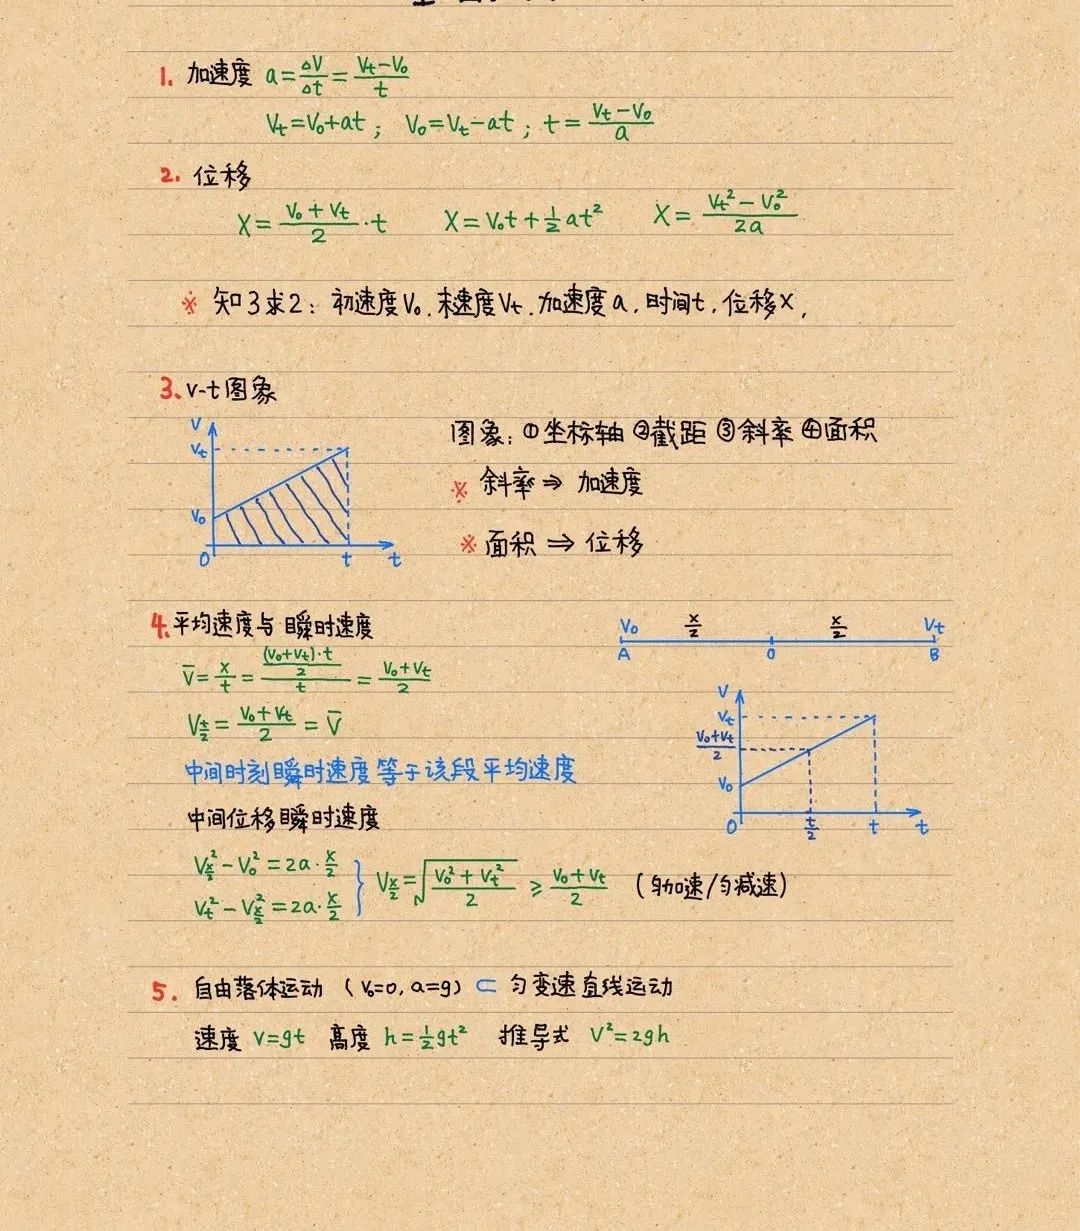 1. 加速度 a=ΔV/Δt=(Vt-V0)/t
Vt=V0+at; V0=Vt-at; t=(Vt-V0)/a
2. 位移
X=(V0+Vt)/2·t X=V0t+½at² X=(Vt²-V0²)/2a
※ 知3求2: 初速度V0.末速度Vt.加速度a.时间t.位移X,
3.v-t图象
V
Vt
V0
0 t t
图象:①坐标轴②截距③斜率④面积
※ 斜率⇒加速度
※ 面积⇒位移
4.平均速度与瞬时速度
V̄=x/t=((V0+Vt)·t/2)/t=(V0+Vt)/2
Vt/2=(V0+Vt)/2=V̄
中间时刻瞬时速度等于该段平均速度
中间位移瞬时速度
Vx/2²-V0²=2a·x/2
Vt²-Vx/2²=2a·x/2
Vx/2=√((V0²+Vt²)/2)⩾(V0+Vt)/2 (匀加速/匀减速)
V0 x/2 x/2 Vt
A 0 B
V
Vt
(V0+Vt)/2
V0
0 t/2 t t
5. 自由落体运动(V0=0,a=g)⊂匀变速直线运动
速度 V=gt 高度 h=½gt² 推导式 V²=2gh